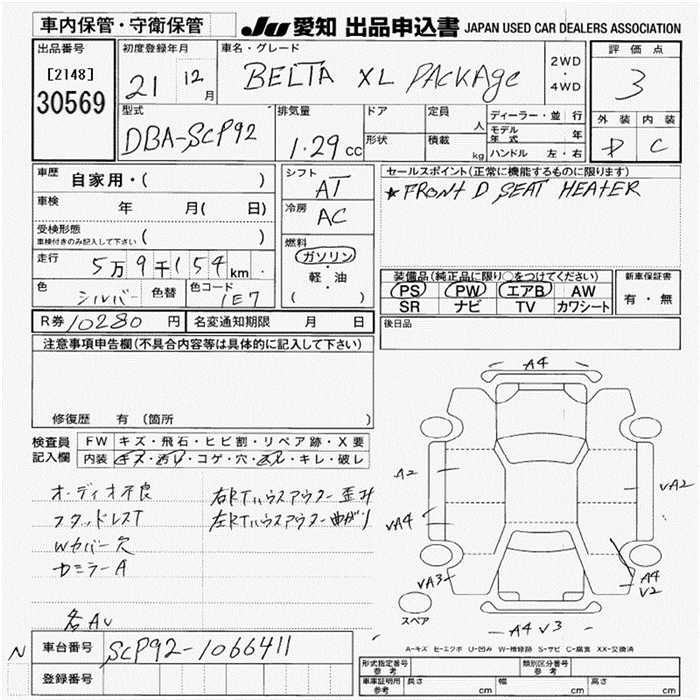 車内保管・守衛保管
JU 愛知 出品申込書 JAPAN USED CAR DEALERS ASSOCIATION
出品番号
[2148]
30569
初度登録年月
21 12月
車名・グレード
BELTA XL PACKAGE
2WD
・
4WD
評価点
3
外装 内装
D C
型式
DBA-SCP92
排気量
1.29cc
ドア
形状
定員 人
積載 kg
ディーラー・並行
モデル年式 年
ハンドル 左・右
車歴 自家用・( )
車検 年 月( 日)
受検形態
車検付きのみ記入して下さい ( )
走行 5万9千154km
色 シルバー 色替 色コード 1E7
シフト AT
冷房 AC
燃料
ガソリン
・
軽・油
( )
セールスポイント(正常に機能するものに限ります)
★FRONT D SEAT HEATER
装備品(純正品に限り○をつけてください)
PS PW エアB AW
SR ナビ TV カワシート
新車保証書
有・無
R券 10280円 名変通知期限 月 日
後日品
注意事項申告欄(不具合内容等は具体的に記入して下さい)
修復歴 有(箇所 )
検査員記入欄
FW キズ・飛石・ヒビ割・リペア跡・X要
内装 キズ・汚れ・コゲ・穴・・キレ・破レ
オーディオ不良
スタッドレスT
Wカバー欠
ミラーA
各AU
右RTハウスアウター歪み
左RTハウスアウター曲がり
A4
A2
VA4
VA3
VA2
A4
V2
A4 V3
スペア
A-キズ E-エクボ U-凹み W-補修跡 S-サビ C-腐食 XX-交換済
N
車台番号 SCP92-1066411
登録番号
形式指定番号 参考
類別区分番号 参考
車庫証明用 参考 長さ cm 幅 cm 高さ cm